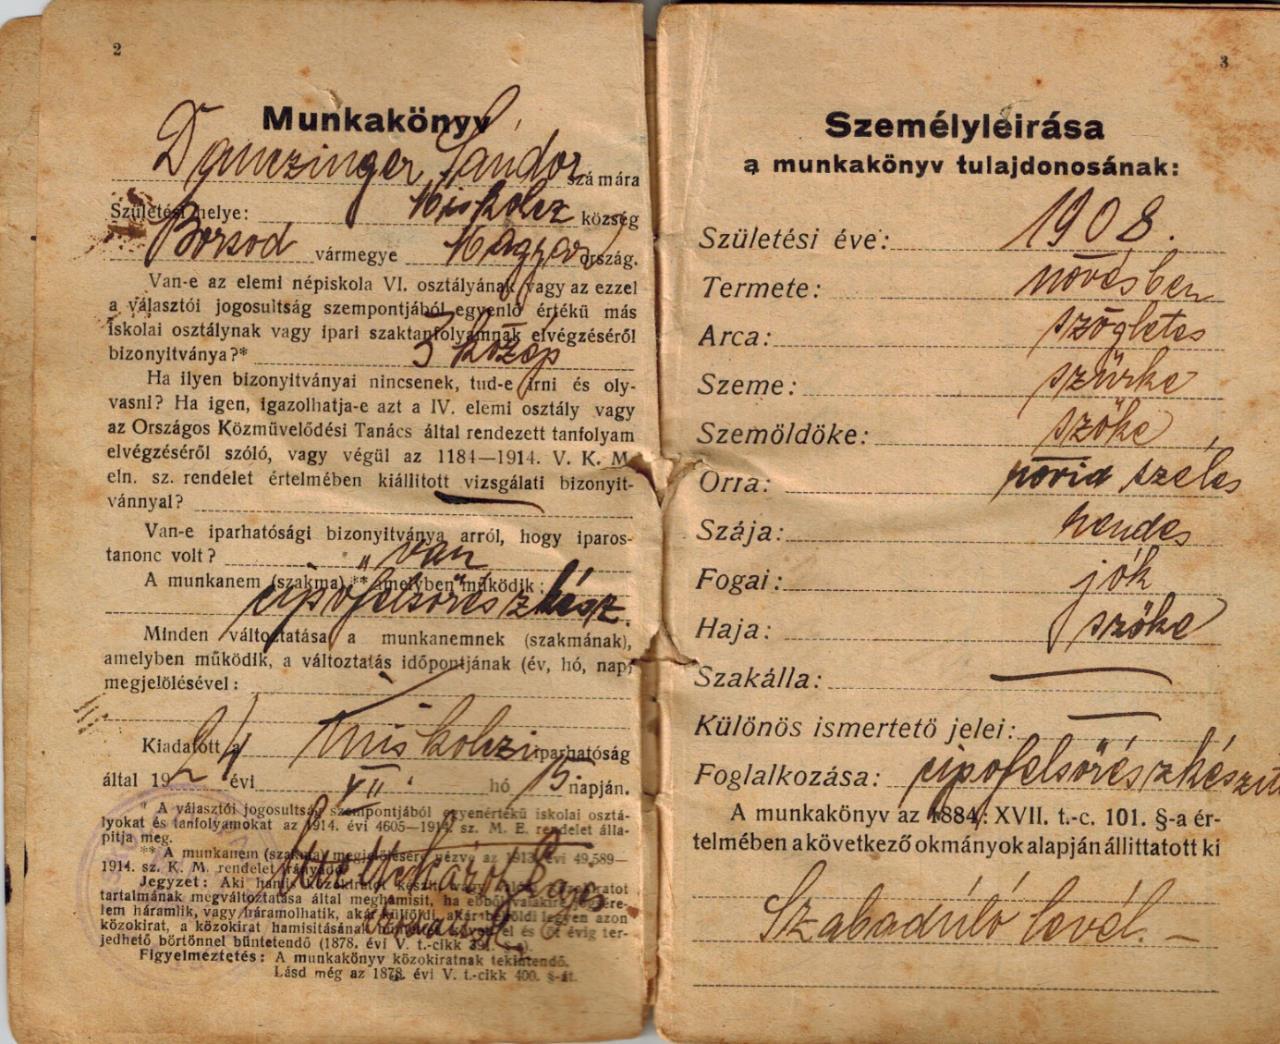 2
Munkakönyv
Danczinger Sándor számára
Születési helye: Miskolcz község
Borsod vármegye Magyarország.
Van-e az elemi népiskola VI. osztályának vagy az ezzel
a választói jogosultság szempontjából egyenlő értékü más
iskolai osztálynak vagy ipari szaktanfolyamnak elvégzéséről
bizonyitványa?* 3 közép
Ha ilyen bizonyitványai nincsenek, tud-e irni és ol-
vasni? Ha igen, igazolhatja-e azt a IV. elemi osztály vagy
az Országos Közmüvelődési Tanács által rendezett tanfolyam
elvégzéséről szóló, vagy végül az 1184—1914. V. K. M.
eln. sz. rendelet értelmében kiállitott vizsgálati bizonyit-
vánnyal?
Van-e iparhatósági bizonyitványa arról, hogy iparos-
tanonc volt? „van"
A munkanem (szakma),** amelyben működik:
cipőfelsőrész kész.
Minden változtatása a munkanemnek (szakmának),
amelyben működik, a változtatás időpontjának (év, hó, nap)
megjelölésével:
Kiadatott a miskolczi iparhatóság
által 1924 évi VII. hó 15 napján.
* A választói jogosultság szempontjából egyenértékü iskolai osztá-
lyokat és tanfolyamokat az 1914. évi 4605—1914. sz. M. E. rendelet álla-
pitja meg.
** A munkanem (szakma) megjelölésére nézve az 1913. évi 49,589—
1914. sz. K. M. rendelet irányadó.
Jegyzet: Aki hamis közokiratot készit, vagy valódi közokiratot
tartalmának megváltoztatása által meghamisit, ha ebből valakire jogsére-
lem háramlik, vagy háramolhatik, akár külföldi, akár belföldi legyen azon
közokirat, a közokirat hamisitásának és öt évig ter-
jedhető börtönnel büntetendő (1878. évi V. t.-cikk 391. §-a).
Figyelmeztetés: A munkakönyv közokiratnak tekintendő.
Lásd még az 1878. évi V. t.-cikk 400. §-át.
3
Személyleirása
a munkakönyv tulajdonosának:
Születési éve: 1908.
Termete: növésben
Arca: szögletes
Szeme: szürke
Szemöldöke: szőke
Orra: rövid széles
Szája: rendes
Fogai: jók
Haja: szőke
Szakálla: —
Különös ismertető jelei: —
Foglalkozása: cipőfelsőrész készítő
A munkakönyv az 1884: XVII. t.-c. 101. §-a ér-
telmében a következő okmányok alapján állittatott ki
Szabaduló levél. –